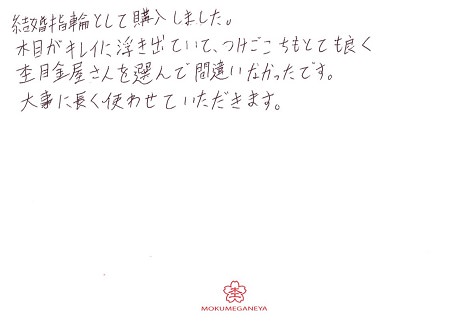 結婚指輪として購入しました。
木目がキレイに浮き出ていて、つけごこちもとても良く
杢目金屋さんを選んで間違いなかったです。
大事に長く使わせていただきます。
杢
MOKUMEGANEYA